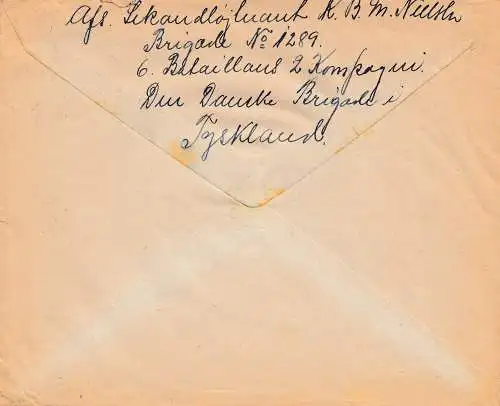 Afs. Sekondløjtnant K. B. M. Nielsen
Brigade No 1289.
6. Bataillons 2 Kompagni.
Den Danske Brigade i
Tyskland.